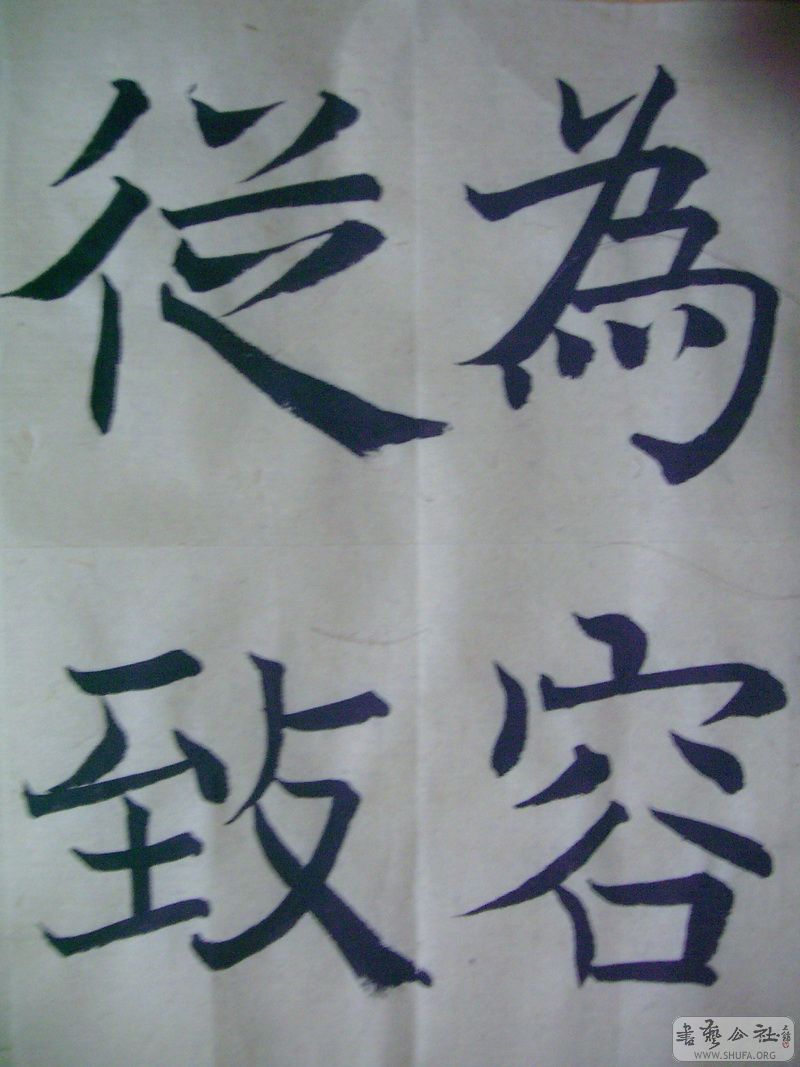 為容
從致
書藝公社
WWW.SHUFA.ORG